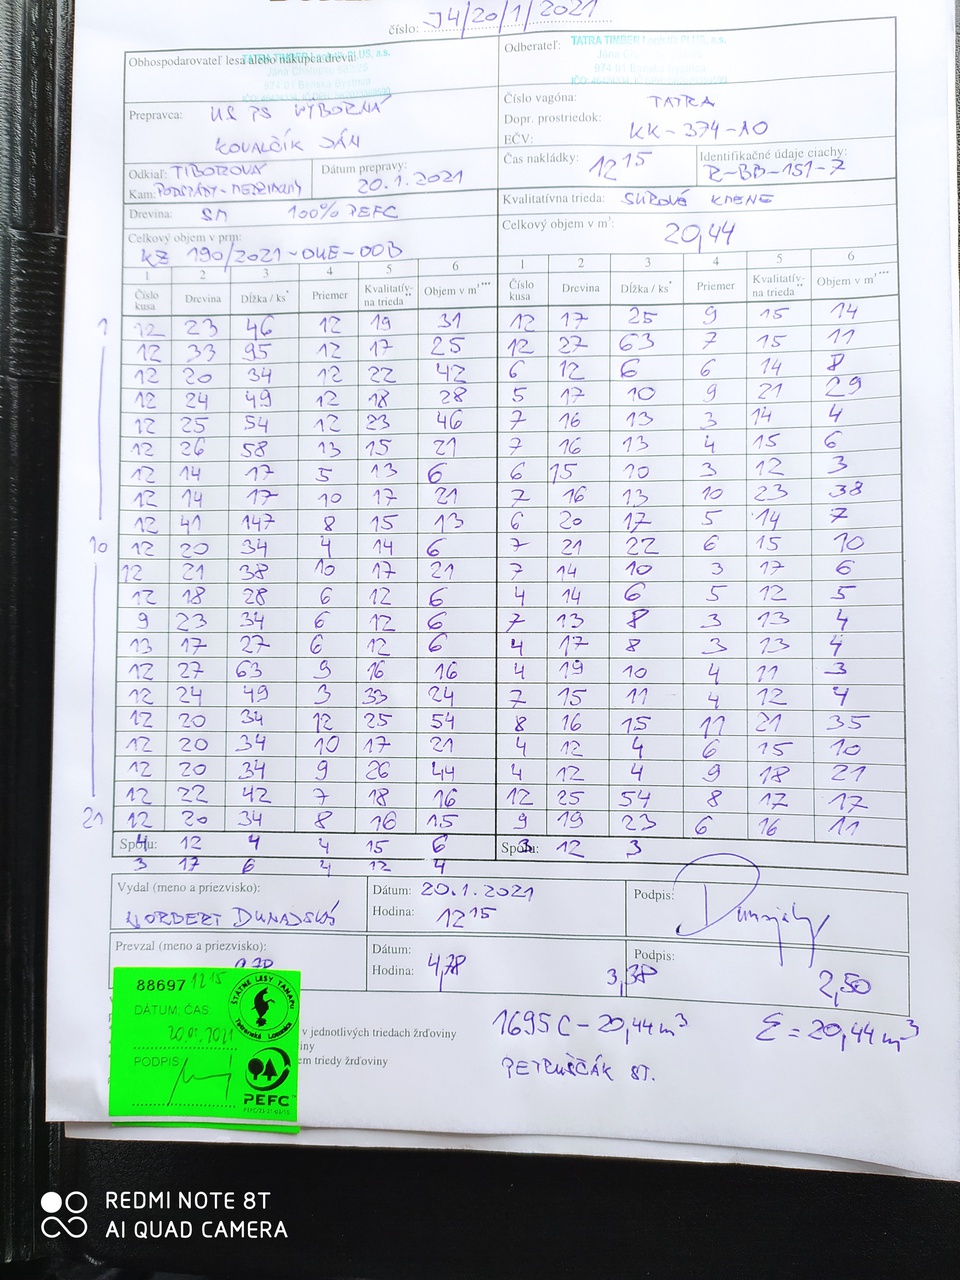 číslo: J4/20/1/2021
Obhospodarovateľ lesa alebo nákupca dreva:
TATRA TIMBER Logistik PLUS, a.s.
974 01 Banská Bystrica
Odberateľ:
TATRA TIMBER Logistik PLUS, a.s.
974 01 Banská Bystrica
Prepravca: US PS VÝBORNÁ
KOVALČÍK JÁN
Číslo vagóna: TATRA
Dopr. prostriedok:
EČV: KK-374-AO
Odkiaľ: TIBOROVÁ
Kam:
Dátum prepravy:
20.1.2021
Čas nakládky: 12 15
Identifikačné údaje ciachy:
R-BB-151-7
Drevina: SM 100% PEFC
Kvalitatívna trieda: SUROVÉ KMENE
Celkový objem v prm:
KZ 190/2021-OUE-OOB
Celkový objem v m³: 20,44
1 2 3 4 5 6 1 2 3 4 5 6
Číslo kusa Drevina Dĺžka / ks* Priemer Kvalitatívna trieda** Objem v m³*** Číslo kusa Drevina Dĺžka / ks* Priemer Kvalitatívna trieda** Objem v m³***
1 12 23 46 12 19 31 12 17 25 9 15 14
12 33 95 12 17 25 12 27 63 7 15 11
12 20 34 12 22 42 6 12 6 6 14 8
12 24 49 12 18 28 5 17 10 9 21 29
12 25 54 12 23 46 7 16 13 3 14 4
12 26 58 13 15 21 7 16 13 4 15 6
12 14 17 5 13 6 6 15 10 3 12 3
12 14 17 10 17 21 7 16 13 10 23 38
12 41 147 8 15 13 6 20 17 5 14 7
10 12 20 34 4 14 6 7 21 22 6 15 10
12 21 38 10 17 21 7 14 10 3 17 6
12 18 28 6 12 6 4 14 6 5 12 5
9 23 34 6 12 6 7 13 8 3 13 4
13 17 27 6 12 6 4 17 8 3 13 4
12 27 63 9 16 16 4 19 10 4 11 3
12 24 49 3 33 24 7 15 11 4 12 4
12 20 34 12 25 54 8 16 15 11 21 35
12 20 34 10 17 21 4 12 4 6 15 10
12 20 34 9 26 44 4 12 4 9 18 21
12 22 42 7 18 16 12 25 54 8 17 17
21 12 20 34 8 16 15 9 19 23 6 16 11
Spolu: 4 12 4 4 15 6 Spolu: 3 12 3
3 17 6 4 12 4
Vydal (meno a priezvisko):
NORBERT DUNAJSKÝ
Dátum: 20.1.2021
Hodina: 12 15
Podpis:
Prevzal (meno a priezvisko):
Dátum:
Hodina: 4,78 3,38
Podpis:
2,50
88697 12 15
DÁTUM, ČAS:
20.01.2021
PODPIS
ŠTÁTNE LESY TANAPU
Tatranská Lomnica
PEFC™
v jednotlivých triedach žrďoviny
iny
em triedy žrďoviny
1695C - 20,44 m³
Σ = 20,44 m³
PETRUŠČÁK ŠT.
REDMI NOTE 8T
AI QUAD CAMERA